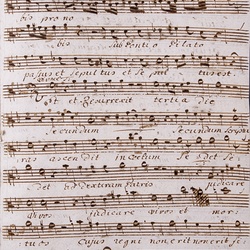 bis pro no
bis sub Pontio Pilato
passus et sepultus et se pul tus est.
Et Resurrexit tertia die
Secundum Secundum Scriptu
ras ascendit in Coelum Se det Se
det ad Dexteram Patris judicare
Vivos judicare vivos et mor
tuos Cujus regni non erit non erit